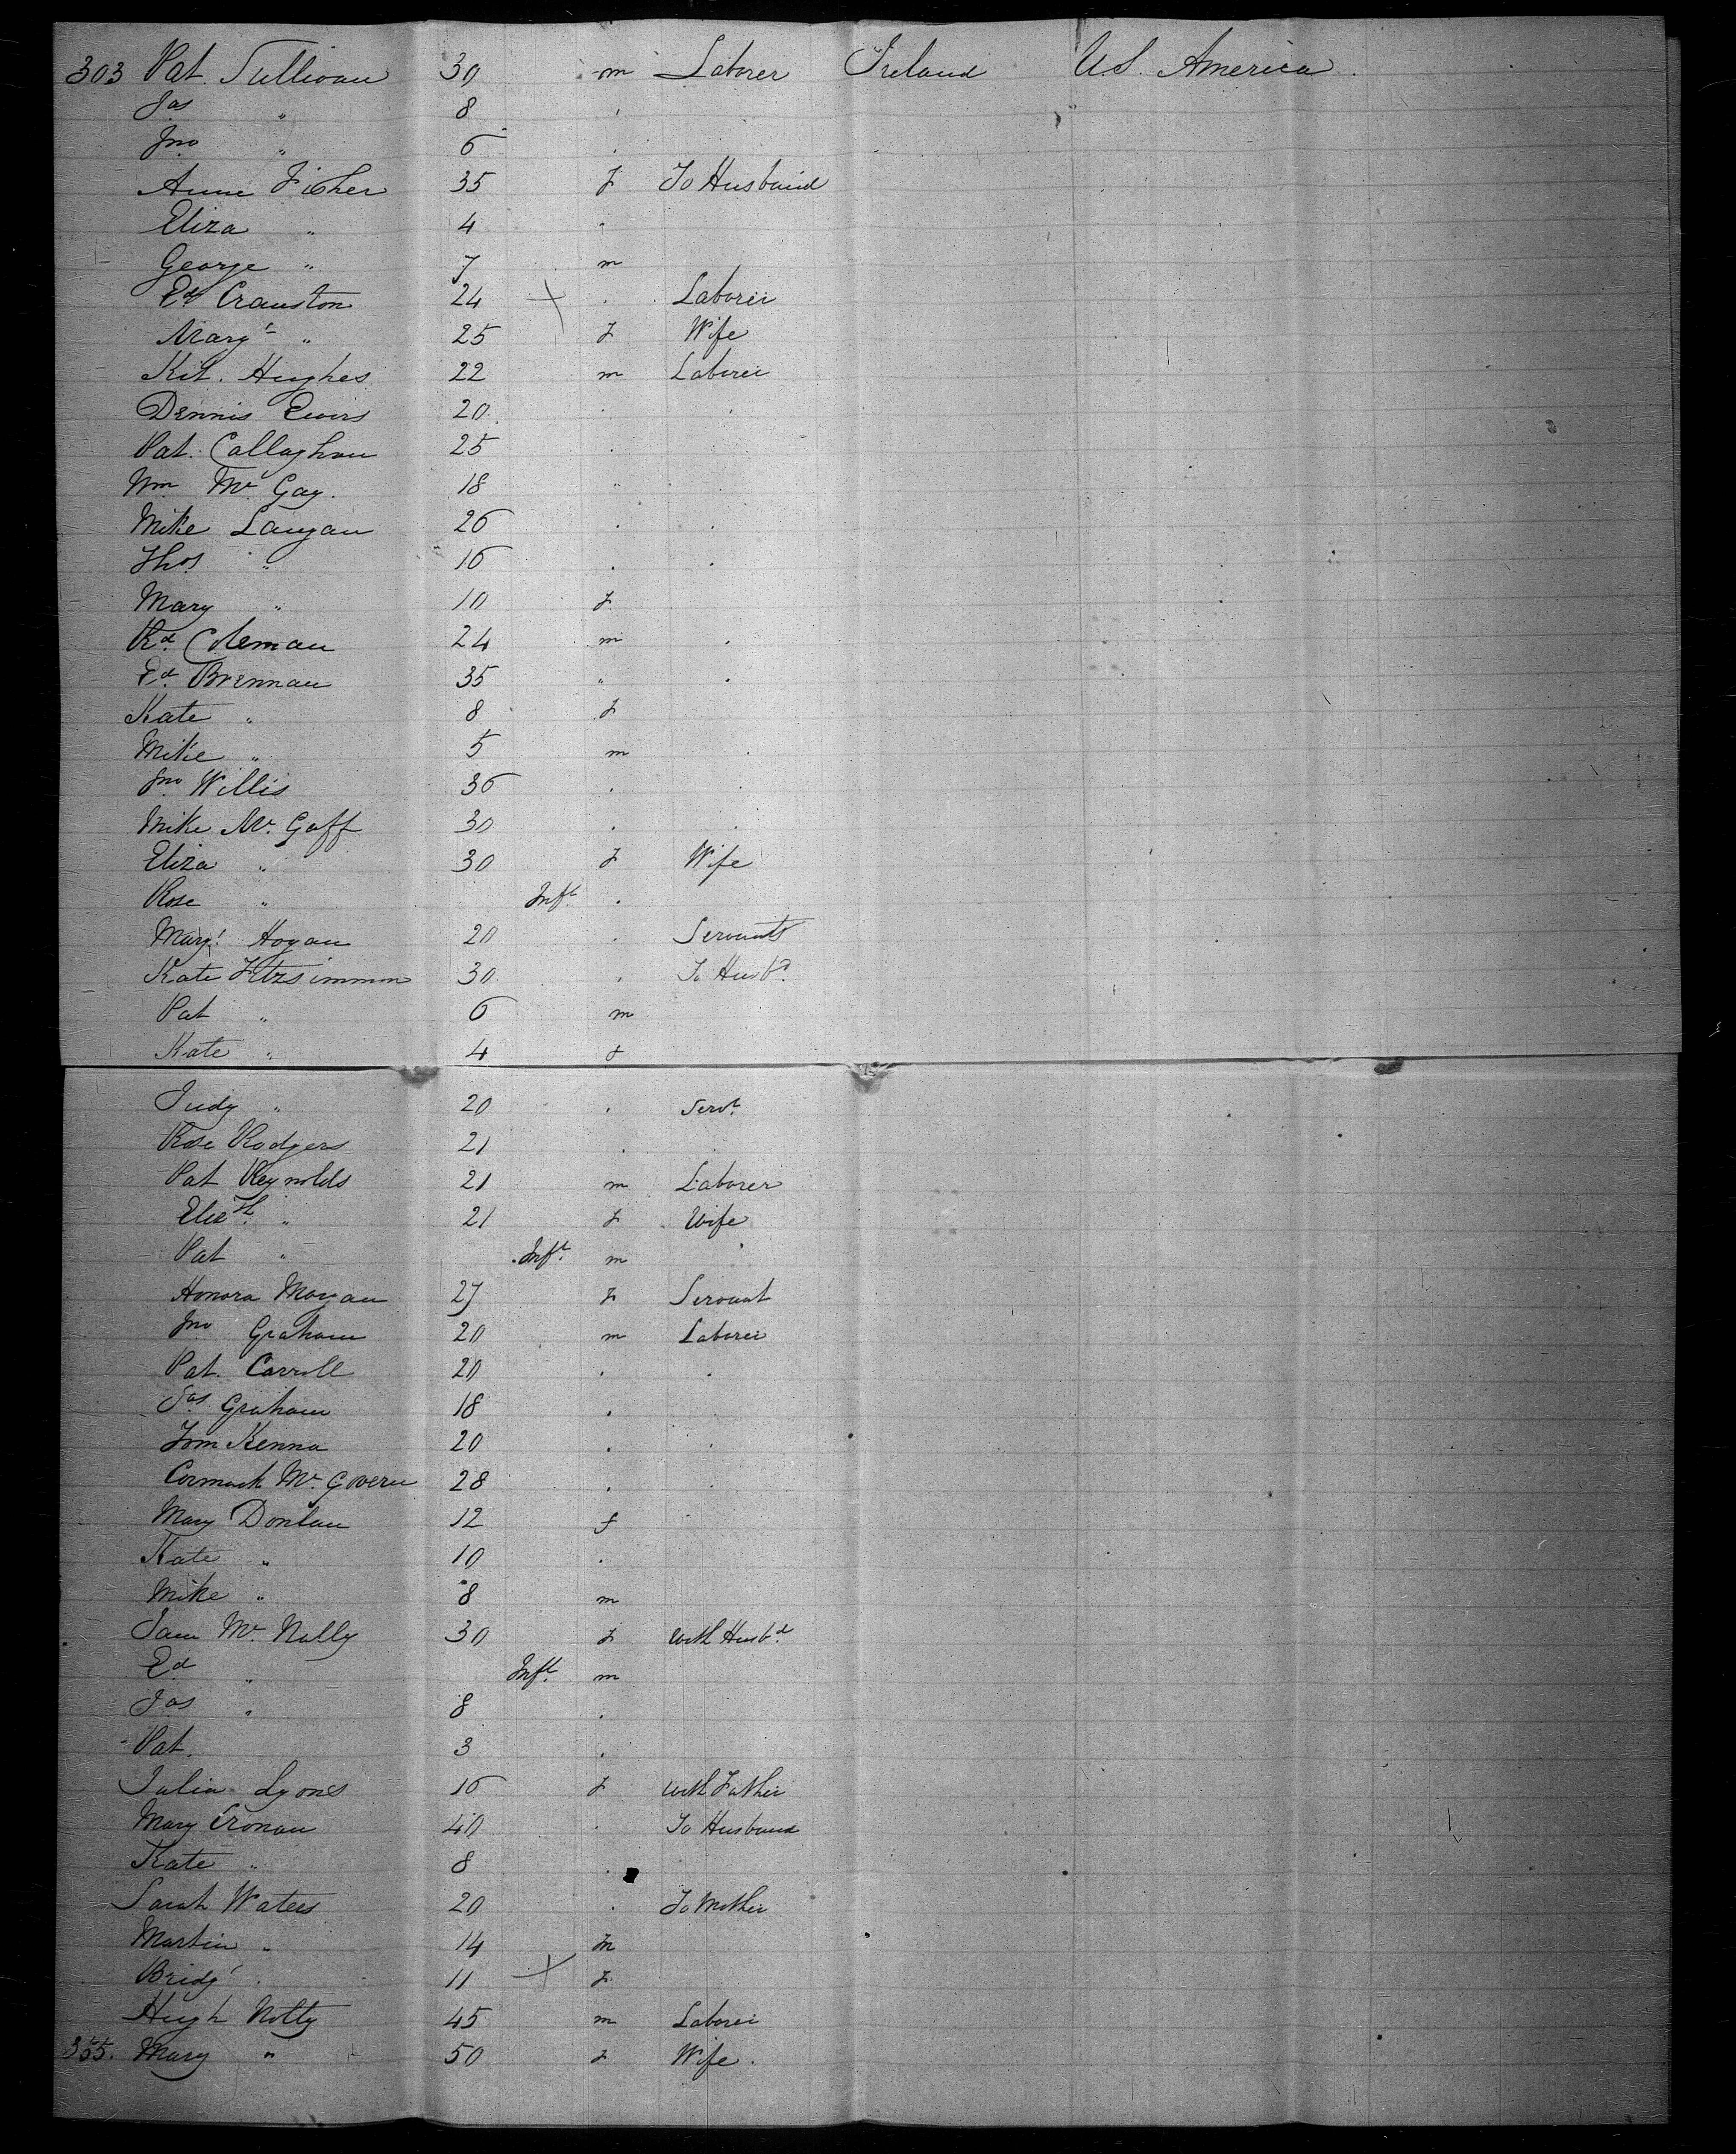 303 Pat Sullivan 30 m Laborer Ireland U.S. America
Jas " 8 "
Jno " 6 "
Anne Fisher 35 f To Husband
Eliza " 4 "
George " 7 m
Ed Cranston 24 " Laborer
Margt " 25 f Wife
Kit. Hughes 22 m Laborer
Dennis 20 " "
Pat. Callaghan 25 "
Wm Mc Gay. 18 " "
Mike Langan 26 " "
Thos " 16 " "
Mary " 10 f
Rd Coleman 24 m "
Ed Brennan 35 " "
Kate " 8 f
Mike " 5 m "
Jno Willis 36 " "
Mike Mc Goff 30 " "
Eliza " 30 f Wife
Rose " Inft "
Margt Hogan 20 " Servants
Kate Fitzsimmon 30 " To Husbd
Pat " 6 m
Kate " 4 f
Judy " 20 " Servt
Rose Rodgers 21 " "
Pat Reynolds 21 m Laborer
Elizth " 21 f Wife
Pat " Inft m "
Honora Morgan 27 f Servant
Jno Graham 20 m Laborer
Pat. Carroll 20 " "
Jas Graham 18 " "
Tom Kenna 20 " "
Cormack Mc Govern 28 " "
Mary Donlan 12 f "
Kate " 10 "
Mike " 8 m
Jam Mc Nally 30 f with Husbd
Ed " Inft m
Jas " 8 "
Pat. 3 "
Julia Lyons 16 f with Father
Mary Cronan 40 " To Husband
Kate " 8 "
Sarah Waters 20 " To Mother
Martin " 14 m
Bridgt " 11 f
Hugh Nolty 45 m Laborer
355. Mary " 50 f Wife.